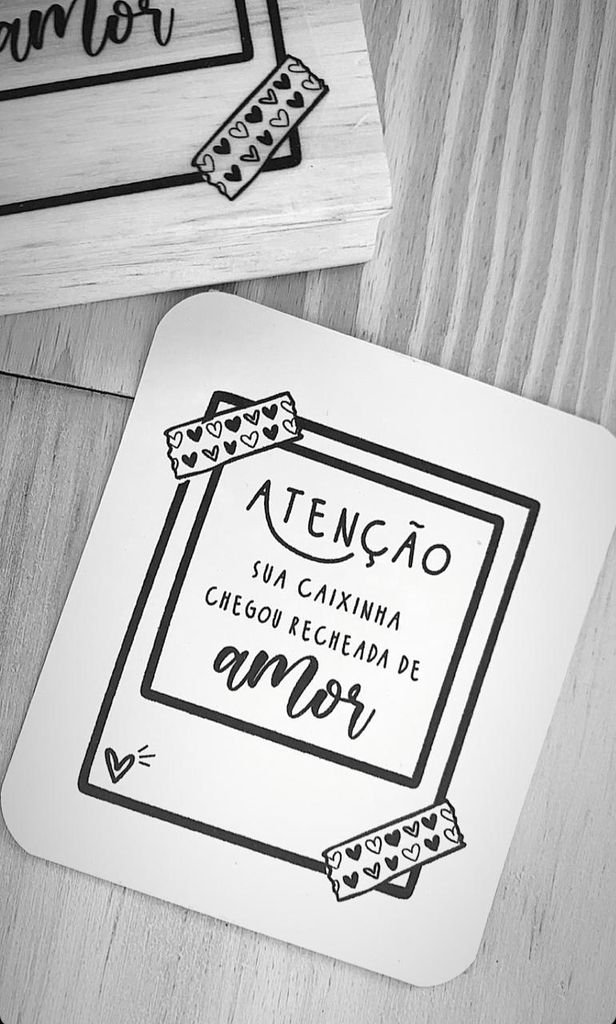 amor
ATENÇÃO
SUA CAIXINHA
CHEGOU RECHEADA DE
amor